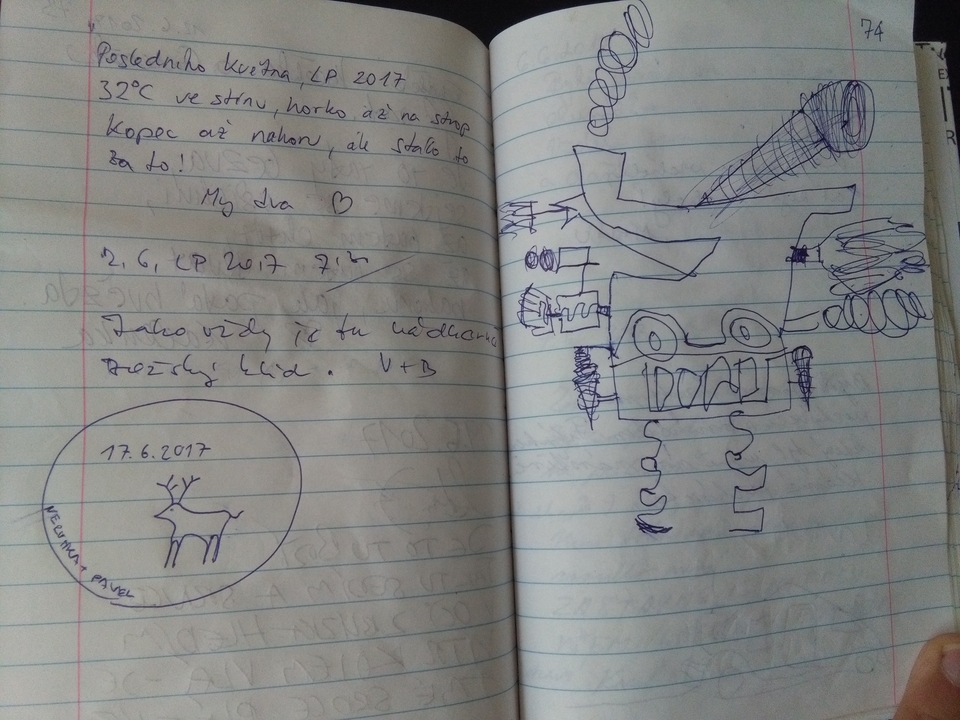 Posledního května, LP 2017
32°C ve stínu, horko až na strop
Kopec až nahoru, ale stálo to
za to!
My dva ♡
2. 6. LP 2017
Jako vždy je tu nádherný
klid. V+B
17.6.2017
PAVEL
74